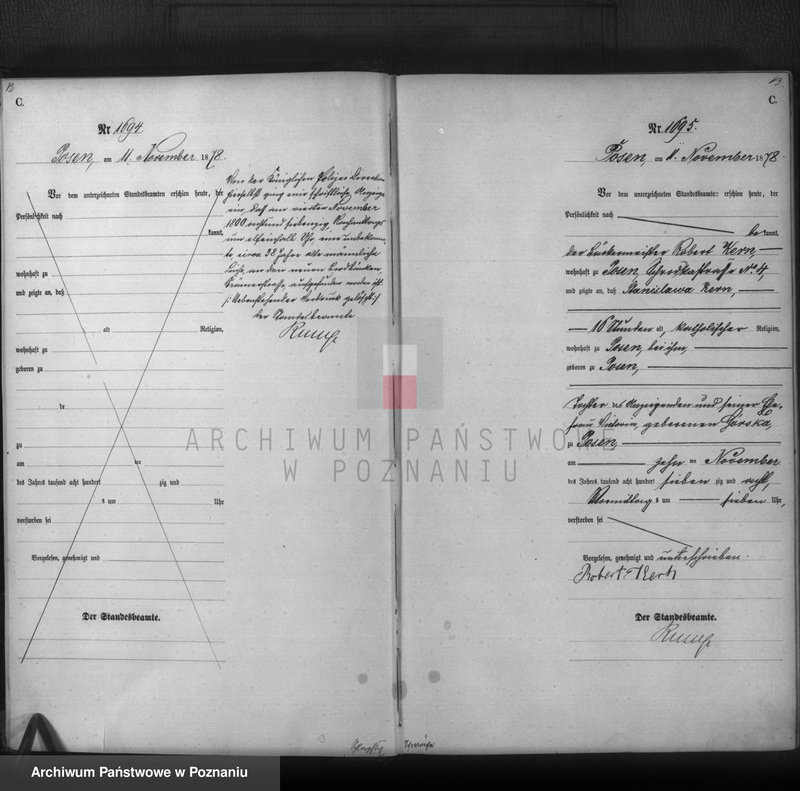 12
C.
Nr. 1694.
Posen, am 11. November 1878.
Vor dem unterzeichneten Standesbeamten erschien heute, der
Persönlichkeit nach
kannt,
wohnhaft zu
und zeigte an, daß
alt Religion,
wohnhaft zu
geboren zu
de
zu
am ten
des Jahres tausend acht hundert zig und
s um Uhr
verstorben sei
Vorgelesen, genehmigt und
Der Standesbeamte.
Von der Königlichen Polizei Direction
hierselbst ging eine schriftliche Anzeige
ein, daß am vierten November
1800 achtundsiebenzig, Nachmittags
um Uhr, eine unbekann-
te circa 38 Jahre alte männliche
Leiche, an den neuen
aufgefunden worden ist.
/: Nebenstehender Vordruck gelöscht :/
Der Standesbeamte
Rump
13
C.
Nr. 1695.
Posen, am 11. November 1878
Vor dem unterzeichneten Standesbeamten erschien heute, der
Persönlichkeit nach
be kannt,
der Bäckermeister Robert Kern,
wohnhaft zu Posen, Schrodkastraße No. 4,
und zeigte an, daß Stanislawa Kern,
16 Stunden alt, katholischer Religion,
wohnhaft zu Posen, bei ihm,
geboren zu Posen,
Tochter des Anzeigenden und seiner Ehe-
frau Victoria, geborenen Górska,
zu Posen,
am zehn ten November
des Jahres tausend acht hundert sieben zig und acht,
Vormittag s um sieben Uhr,
verstorben sei
Vorgelesen, genehmigt und unterschrieben.
Robert Kern
Der Standesbeamte.
Rump
ARCHIWUM PAŃSTWOWE
W POZNANIU
Archiwum Państwowe w Poznaniu